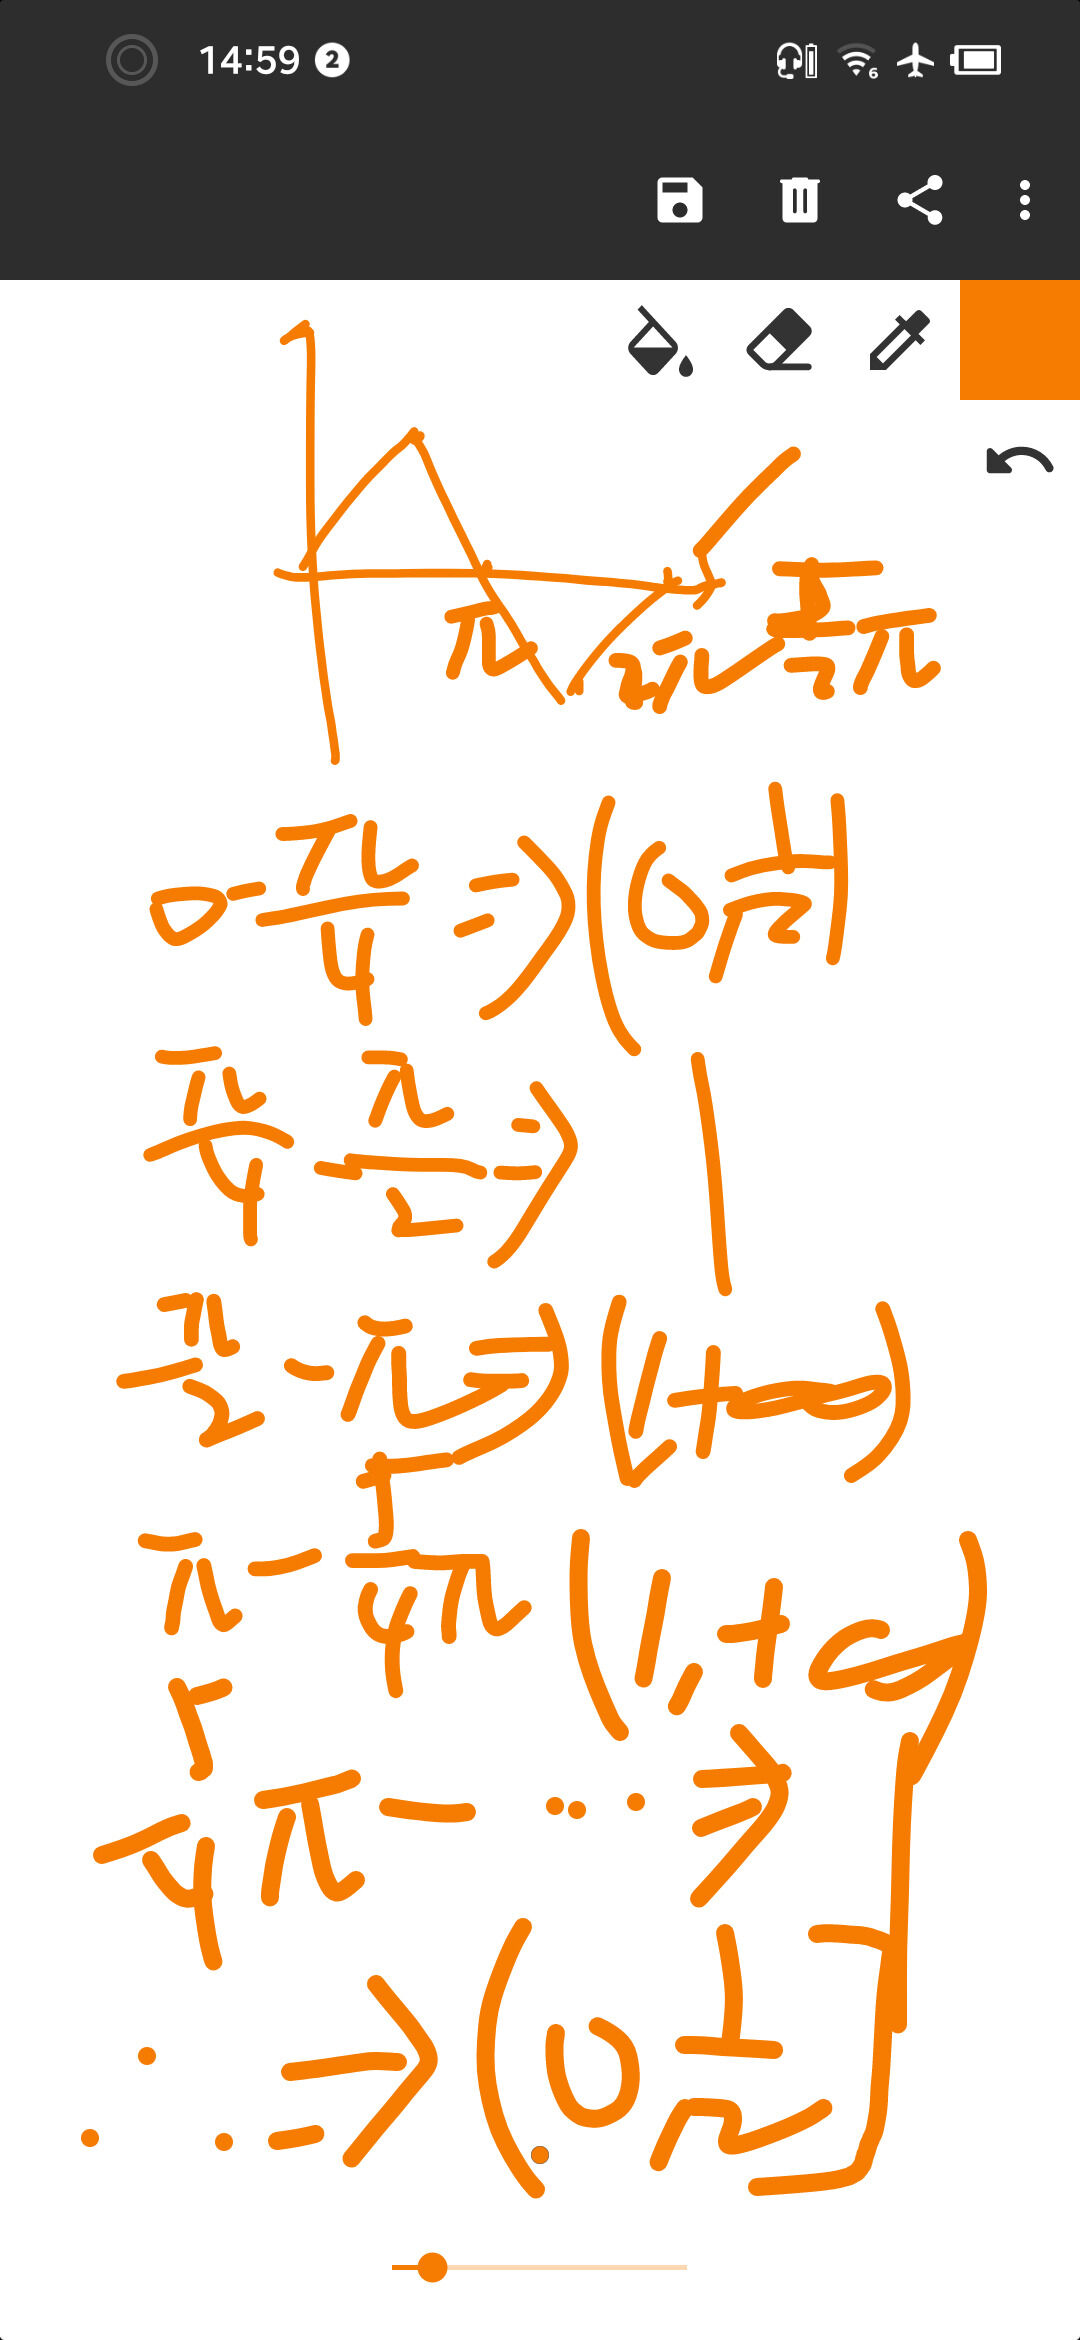 14:59 2
6
π 2π 5/2 π
0 - π/4 ⇒ (0, 1/2)
π/4 - π/2 ⇒ 1
π/2 - π ⇒ (1, +∞)
π - 5/4 π (1, +∞)
5/4 π - ... ⇒
⇒ (0, 1/2]